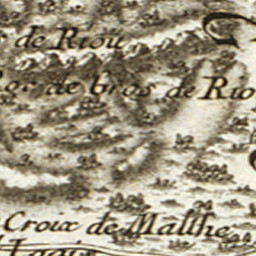 de Riou
de Gras de Rio
Croix de Malthe